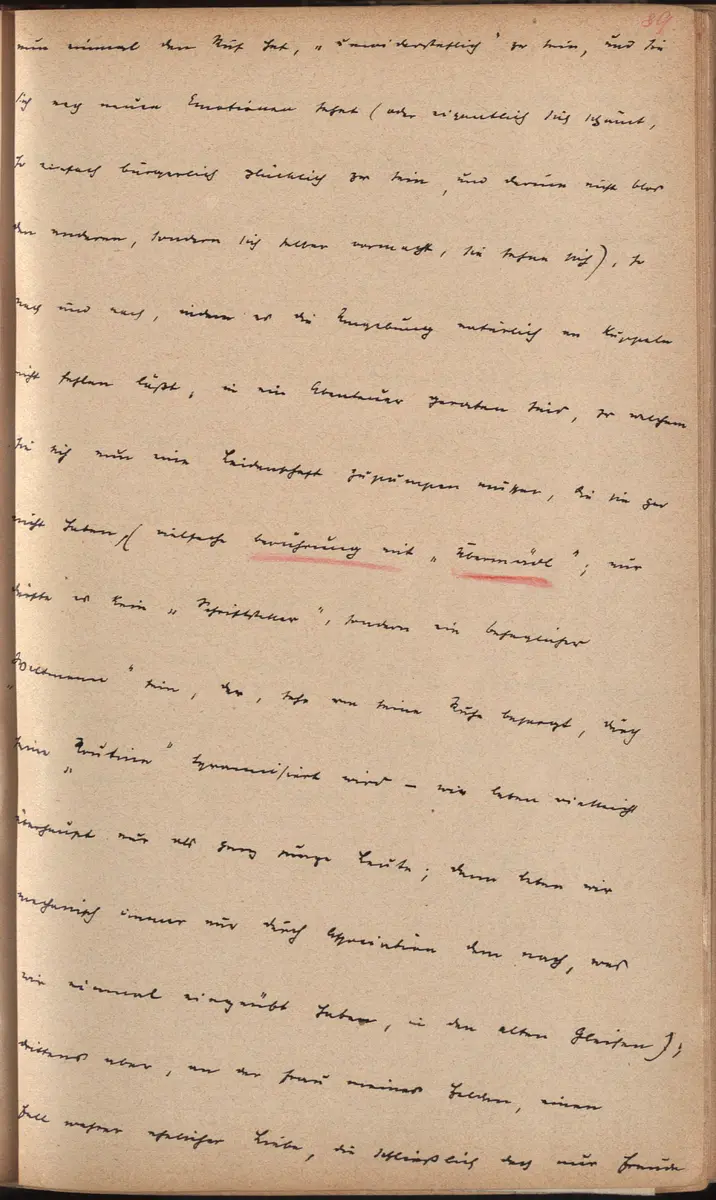 39.
nun einmal den Ruf hat, „unwiderstehlich" zu sein, und sie
sich nach neuen Emotionen sehnt (oder eigentlich sich schämt,
so einfach bürgerlich glücklich zu sein, und darum nicht blos
den anderen, sondern sich selber vormacht, sie sehne sich), so
nach und nach, indem es die Umgebung natürlich an Kuppeln
nicht fehlen läßt, in ein Abenteuer geraten sind, zu welchem
sie sich nun eine Leidenschaft zupumpen müssen, die sie gar
nicht haben, (vielfache berührung mit „Übermädl"; nur
dürfte es kein „Schriftsteller", sondern ein behaglicher
„Weltmann" sein, der, sehr um seine Ruhe besorgt, durch
seine „Routine" tyrannisiert wird – wir leben vielleicht
überhaupt nur als ganz junge Leute; dann leben wir
mechanisch immer nur durch Association dem nach, was
wir einmal eingeübt haben, in den alten Gleisen);
drittens aber, an der Frau meines Helden, einen
Fall wahrer ehelicher Liebe, die schließlich doch nur Freude